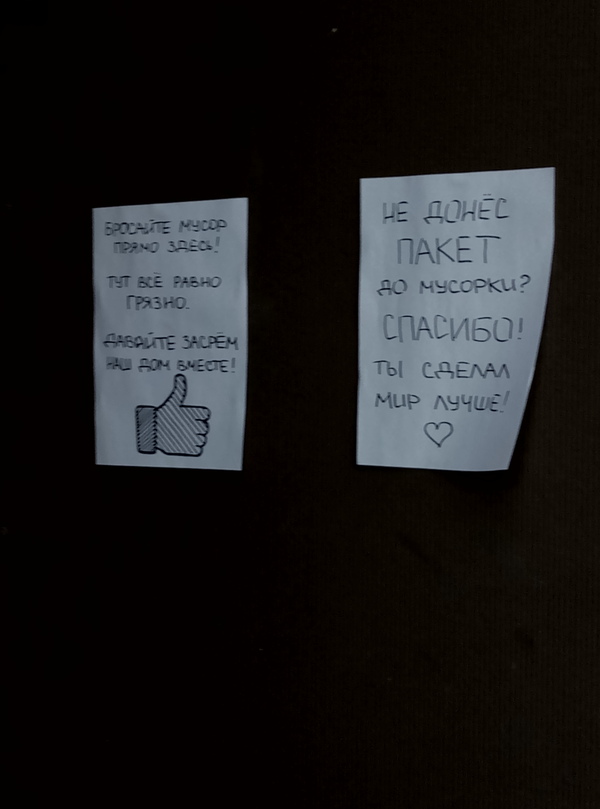 БРОСАЙТЕ МУСОР
ПРЯМО ЗДЕСЬ!
ТУТ ВСЁ РАВНО
ГРЯЗНО.
ДАВАЙТЕ ЗАСРЁМ
НАШ ДОМ ВМЕСТЕ!
НЕ ДОНЁС
ПАКЕТ
ДО МУСОРКИ?
СПАСИБО!
ТЫ СДЕЛАЛ
МИР ЛУЧШЕ!